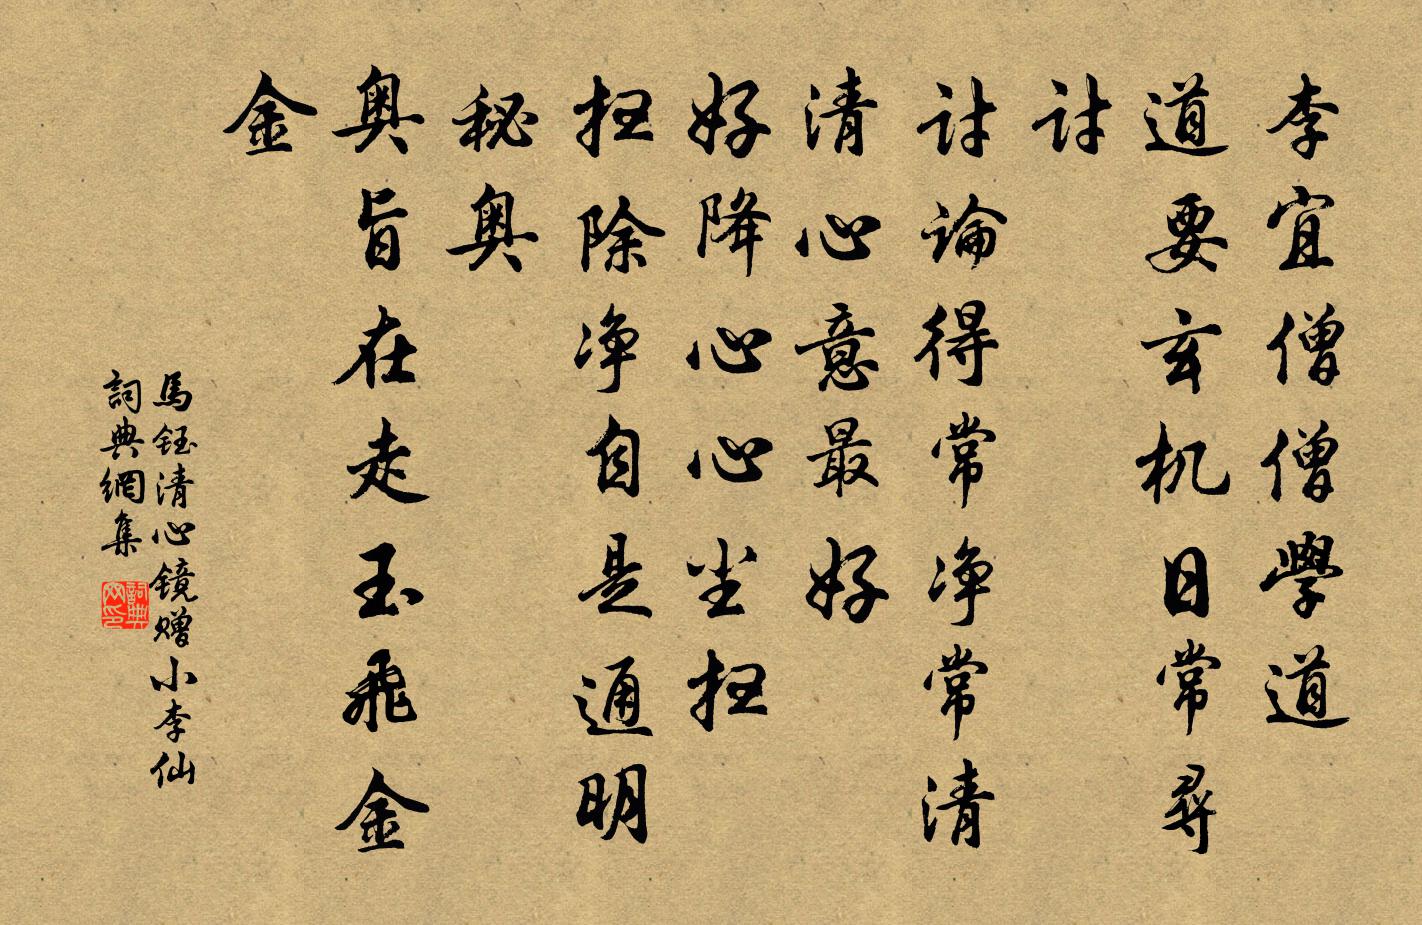 李宜僧僧學道
道要玄机日常尋
討
討論得常净常清
清心意最好
好降心心尘扭
扭除净自是通明
秘奥
奥旨在走玉飛金
金
馬鈺清心鏡赠小李仙
詞典網集
詞典网印